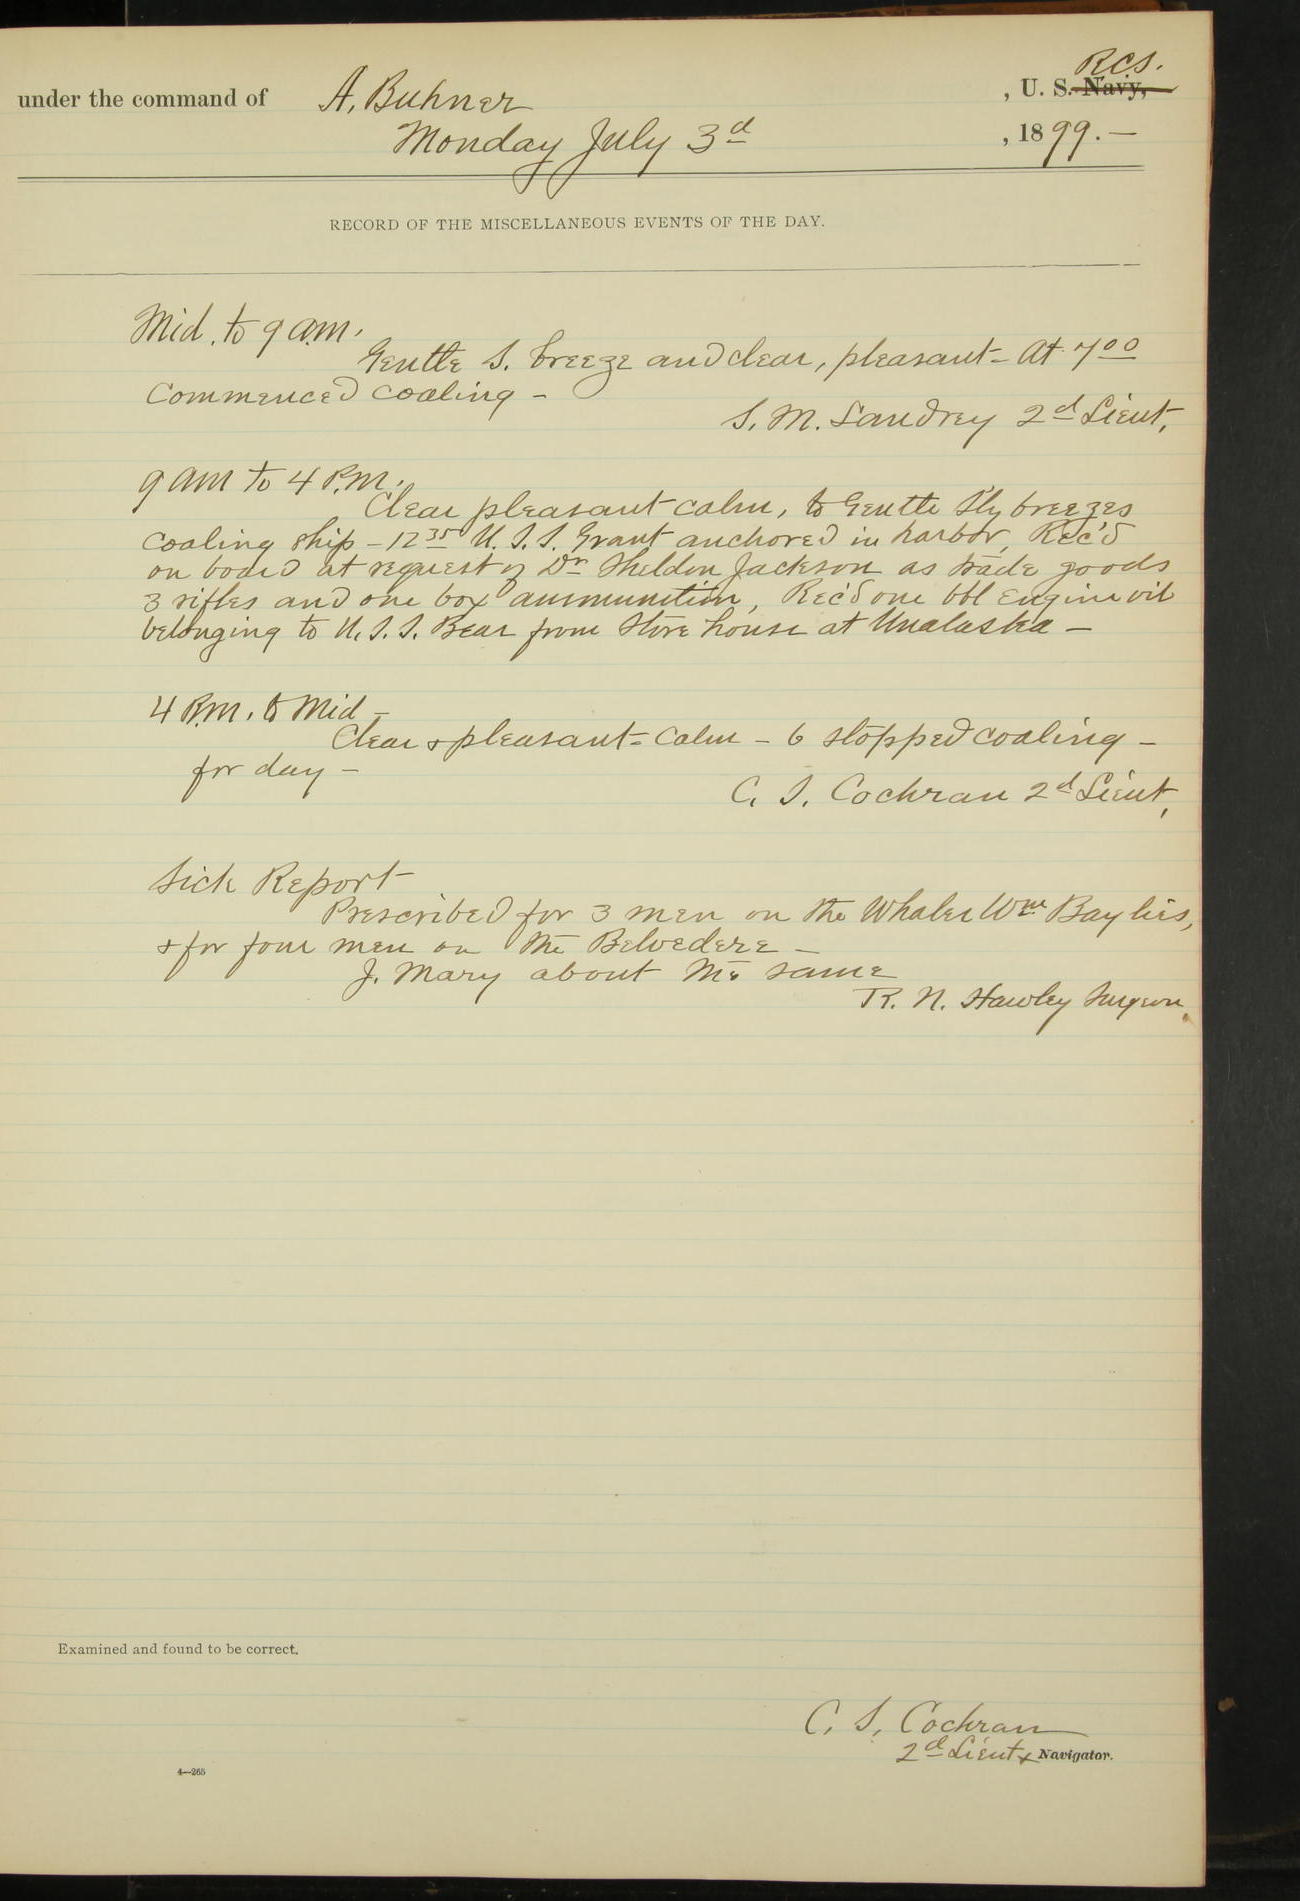 RCS.
under the command of A. Buhner , U. S. Navy,
Monday July 3d , 1899.—
RECORD OF THE MISCELLANEOUS EVENTS OF THE DAY.
Mid. to 9 a.m.
Gentle S. breeze and clear, pleasant - At 7 00
Commenced coaling -
S. M. Landrey 2d Lieut.
9 am to 4 P.m.
Clear pleasant calm, to Gentle S'ly breezes
coaling ship - 12 35 U. S. S. Grant anchored in harbor, Rec'd
on board at request of Dr Sheldon Jackson as trade goods
3 rifles and one box ammunition, Rec'd one bbl Engine oil
belonging to U. S. S. Bear from Store house at Unalaska —
4 P.m. to Mid -
Clear & pleasant - calm - 6 stopped coaling -
for day -
C. S. Cochran 2d Lieut,
Sick Report
Prescribed for 3 men on the Whaler Wm Baylies,
& for four men on the Belvedere -
J. Mary about the same
R. N. Hawley Surgeon.
Examined and found to be correct.
C. S. Cochran
2d Lieut & Navigator.
4—265